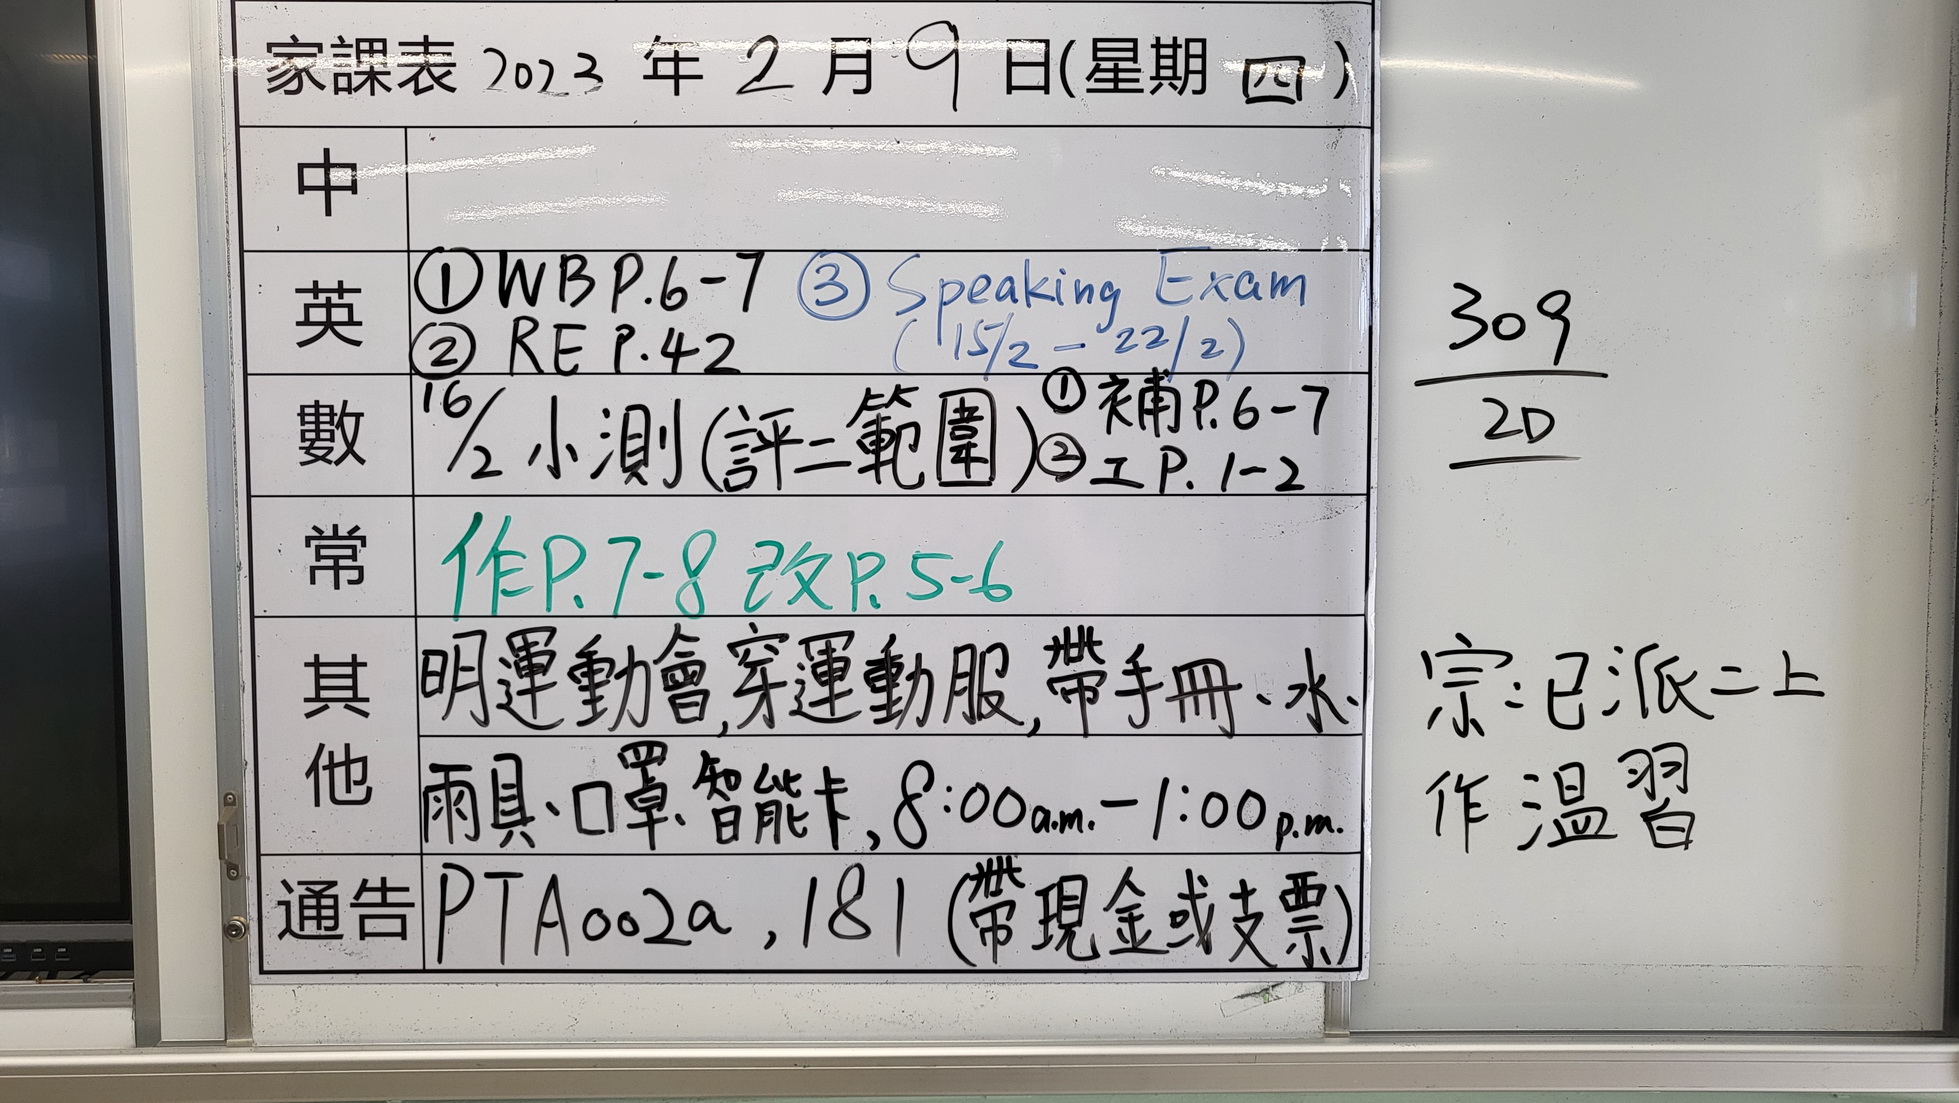 家課表 2023 年 2 月 9 日(星期 四)
中
英
①WB P.6-7 ③ Speaking Exam
② RE P.42 (15/2 - 22/2)
數
16/2 小測(評二範圍) ①補P.6-7
②工P.1-2
常
作P.7-8 改P.5-6
其他
明運動會,穿運動服,帶手冊、水、
雨具、口罩、智能卡,8:00a.m.-1:00p.m.
通告
PTA002a,181(帶現金或支票)
309
2D
宗:已派二上
作溫習